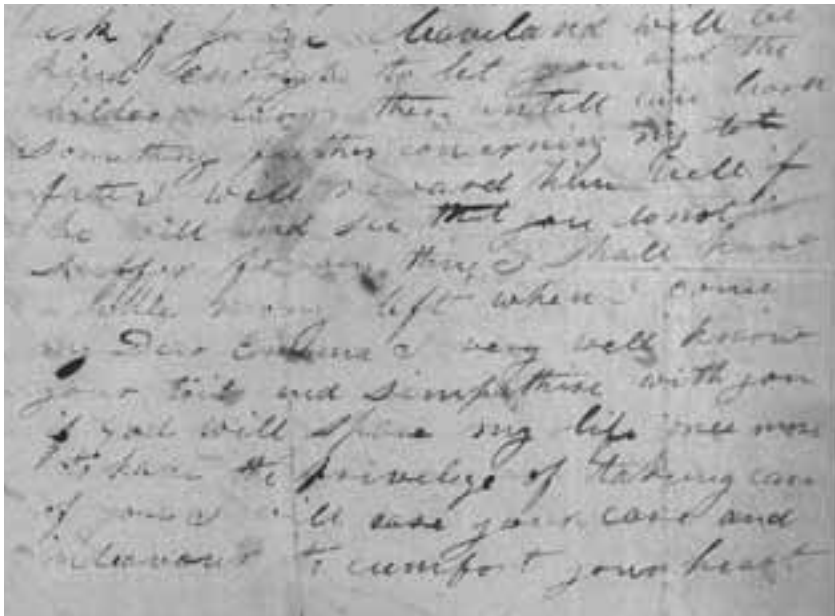 ask if Judge Cleaveland will be
kind enough to let you and the
childer tarry there untill can learn
something further concerning my lot
fater will reward him well if
he will and see that you do not
suffer for any thing I shall have
a little mony left when I come
my Dear Emma I very well know
your toils and simpathise with you
if god will spare my life once more
to have the privelige of taking care
of you I will ease your care and
indeavour to cumfort your heart